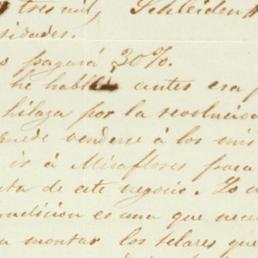 tres mil, Schleiden
sidades.
pagará 30%.
he hablé antes era p
hilaza por la revolucion
uede venderse á los mis
ir á Miraflores para
ta de este negocio. Yo
ndicion es una que nece
a montar los telares que